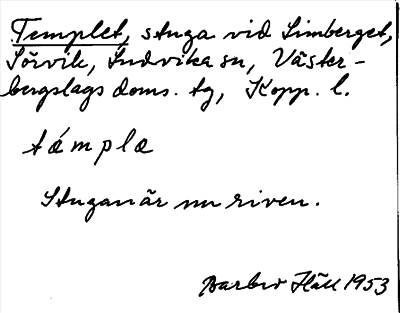 Templet, stuga vid Simberget,
Sörvik, Ludvika sn, Väster-
bergslags doms. tg, Kopp. l.
tæ´mplæ
Stugan är nu riven.
Barbro Häll 1953